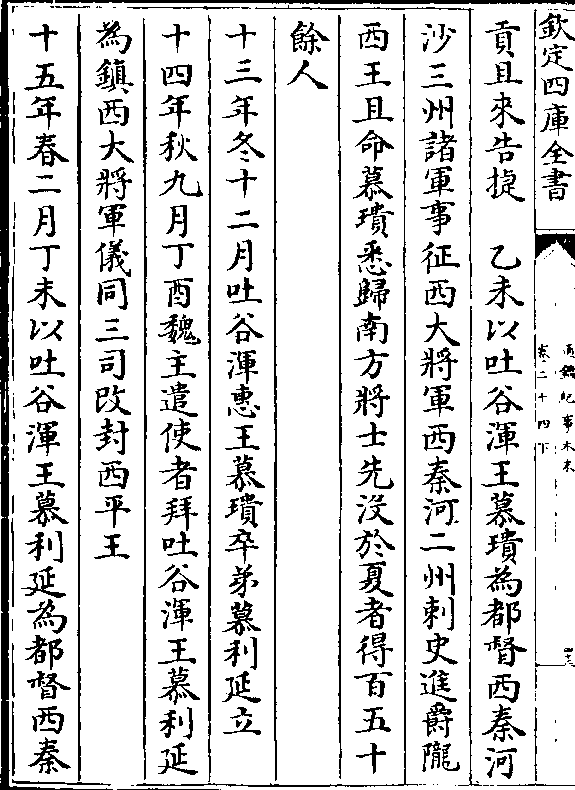 欽定四庫全書
通鑑紀事本末
卷二十四下
貢且來告捷　乙未以吐谷渾王慕璝為都督西秦河
沙三州諸軍事征西大將軍西秦河二州刺史進爵隴
西王且命慕璝悉歸南方將士先沒於夏者得百五十
餘人
十三年冬十二月吐谷渾惠王慕璝卒弟慕利延立
十四年秋九月丁酉魏主遣使者拜吐谷渾王慕利延
為鎮西大將軍儀同三司改封西平王
十五年春二月丁未以吐谷渾王慕利延為都督西秦